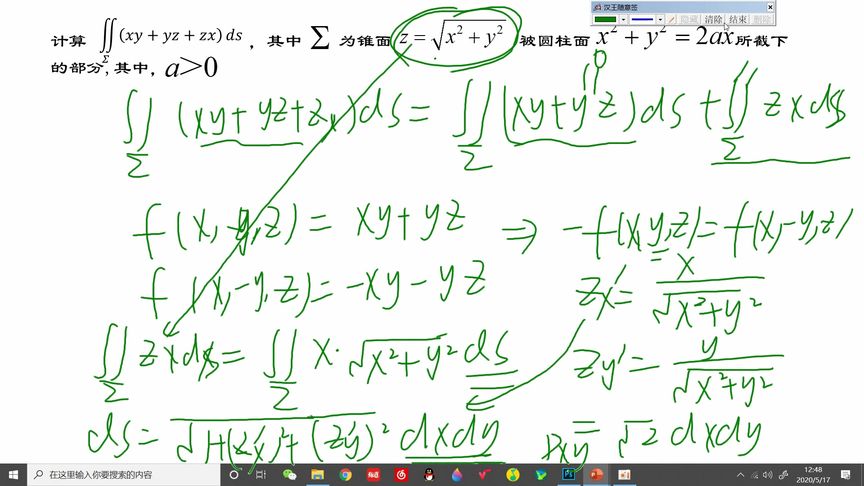 汉王随意签
隐藏 清除 结束 删除
计算 ∬_Σ (xy + yz + zx) ds ，其中 Σ 为锥面 z = √(x² + y²) 被圆柱面 x² + y² = 2ax 所截下
的部分,其中, a>0
0
∬_Σ (xy+yz+zx)ds = ∬_Σ (xy+yz)ds + ∬_Σ zxds
f(x,-y,z) = xy+yz ⇒ -f(x,y,z) = f(x,-y,z)
f(x,-y,z) = -xy-yz zx' = x/√(x²+y²)
∬_Σ zxds = ∬_Σ x·√(x²+y²) ds zy' = y/√(x²+y²)
ds = √(1+(zx')²+(zy')²) dxdy = √2 dxdy
Dxy
在这里输入你要搜索的内容
12:48
2020/5/17